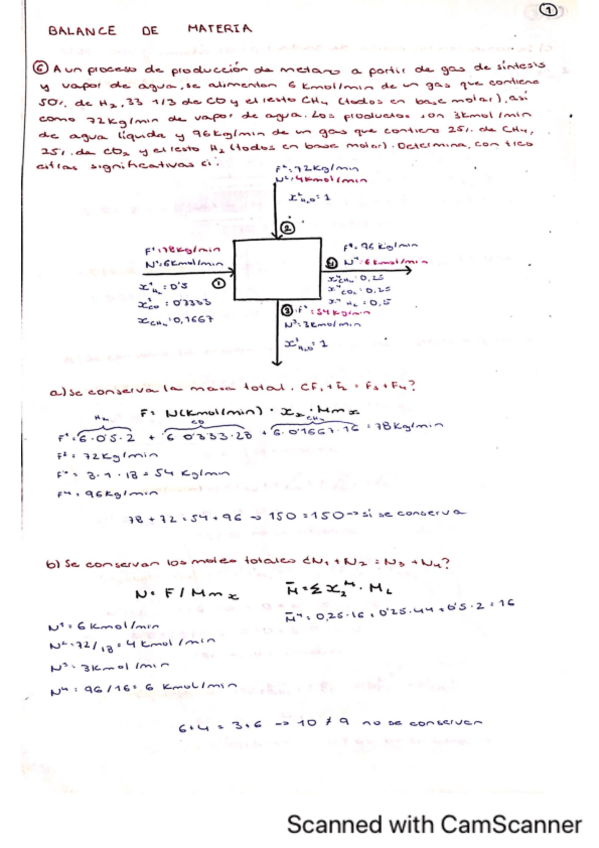 1
BALANCE DE MATERIA
6 A un proceso de producción de metano a partir de gas de síntesis
y vapor de agua, se alimentan 6 kmol/min de un gas que contiene
50% de H2, 33 1/3 de CO y el resto CH4 (todos en base molar), así
como 72 Kg/min de vapor de agua. Los productos son 3kmol/min
de agua líquida y 96Kg/min de un gas que contiene 25% de CH4,
25% de CO2 y el resto H2 (todos en base molar). Determina, con tres
cifras significativas si:
F²: 72Kg/min
N²: 4Kmol/min
x²H2O: 1
2
F¹: 78Kg/min
N¹: 6Kmol/min
1
x¹H2: 0'5
x¹CO: 0'3333
xCH4: 0,1667
F⁴: 96 Kg/min
4 N⁴: 6Kmol/min
x⁴CH4: 0,25
x⁴CO2: 0,25
x⁴H2: 0,5
3 F³: 54Kg/min
N³: 3Kmol/min
x³H2O: 1
a) Se conserva la masa total. ¿F1+F2 = F3+F4?
F: N(Kmol/min) · xx · Mmx
H2 CO CH4
F¹: 6·0'5·2 + 6·0'333·28 + 6·0'1667·16 = 78Kg/min
F²: 72Kg/min
F³: 3·1·18 = 54 Kg/min
F⁴: 96Kg/min
78 + 72 = 54 + 96 → 150 = 150 → si se conserva
b) Se conservan los moles totales ¿N1 + N2 = N3 + N4?
N: F/Mmx M̄ = Σ x⁴i · Mi
M̄⁴: 0,25·16 + 0'25·44 + 0'5·2 = 16
N¹: 6 Kmol/min
N²: 72/18 = 4 Kmol/min
N³: 3Kmol/min
N⁴: 96/16 = 6 Kmol/min
6+4 = 3+6 → 10 ≠ 9 no se conservan
Scanned with CamScanner